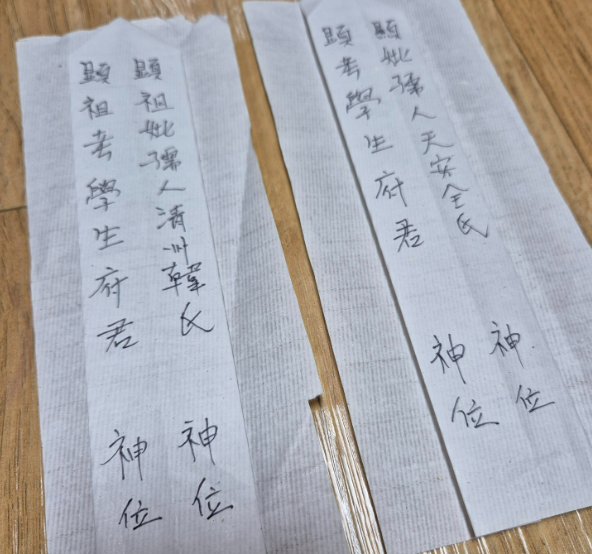 顯祖考學生府君 神位
顯祖妣孺人清州韓氏 神位
顯考學生府君 神位
顯妣孺人天安全氏 神位